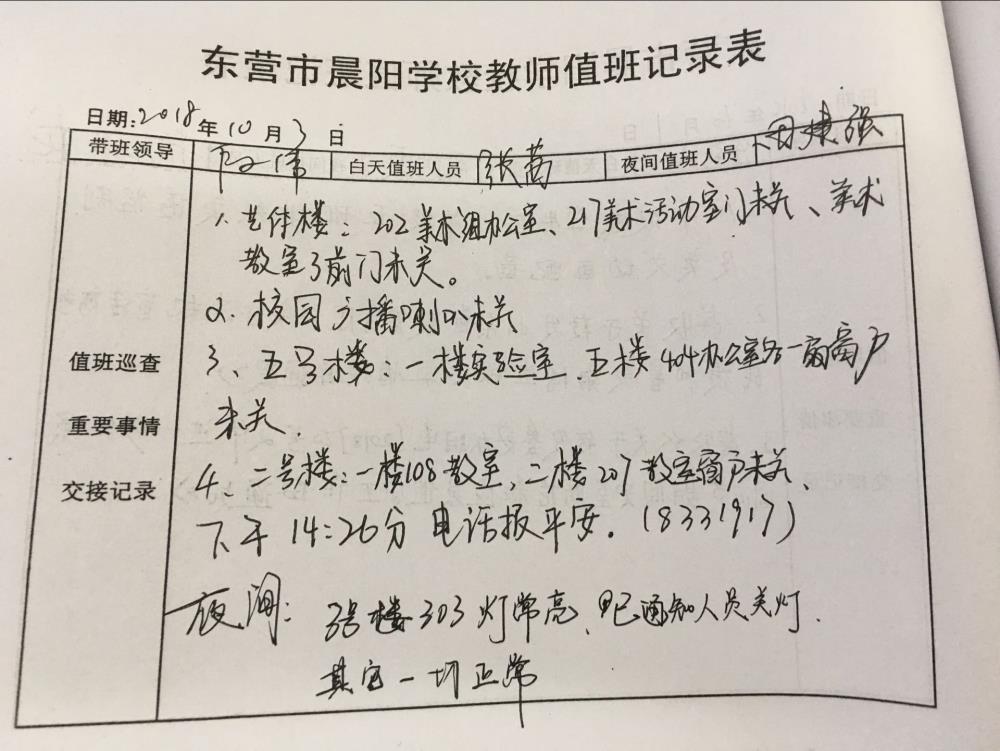 东营市晨阳学校教师值班记录表
日期:2018年10月3日
带班领导 白天值班人员 张茜 夜间值班人员 田建强
1、艺体楼：202美术组办公室、217美术活动室门未关、美术
教室3前门未关。
2、校园广播喇叭未关
值班巡查 3、五号楼：一楼实验室、五楼404办公室各一扇窗户
重要事情 未关
交接记录 4、二号楼：一楼108教室，二楼207教室窗户未关、
下午14:26分电话报平安.(8331917)
夜间：3号楼303灯常亮、已通知人员关灯.
其它一切正常